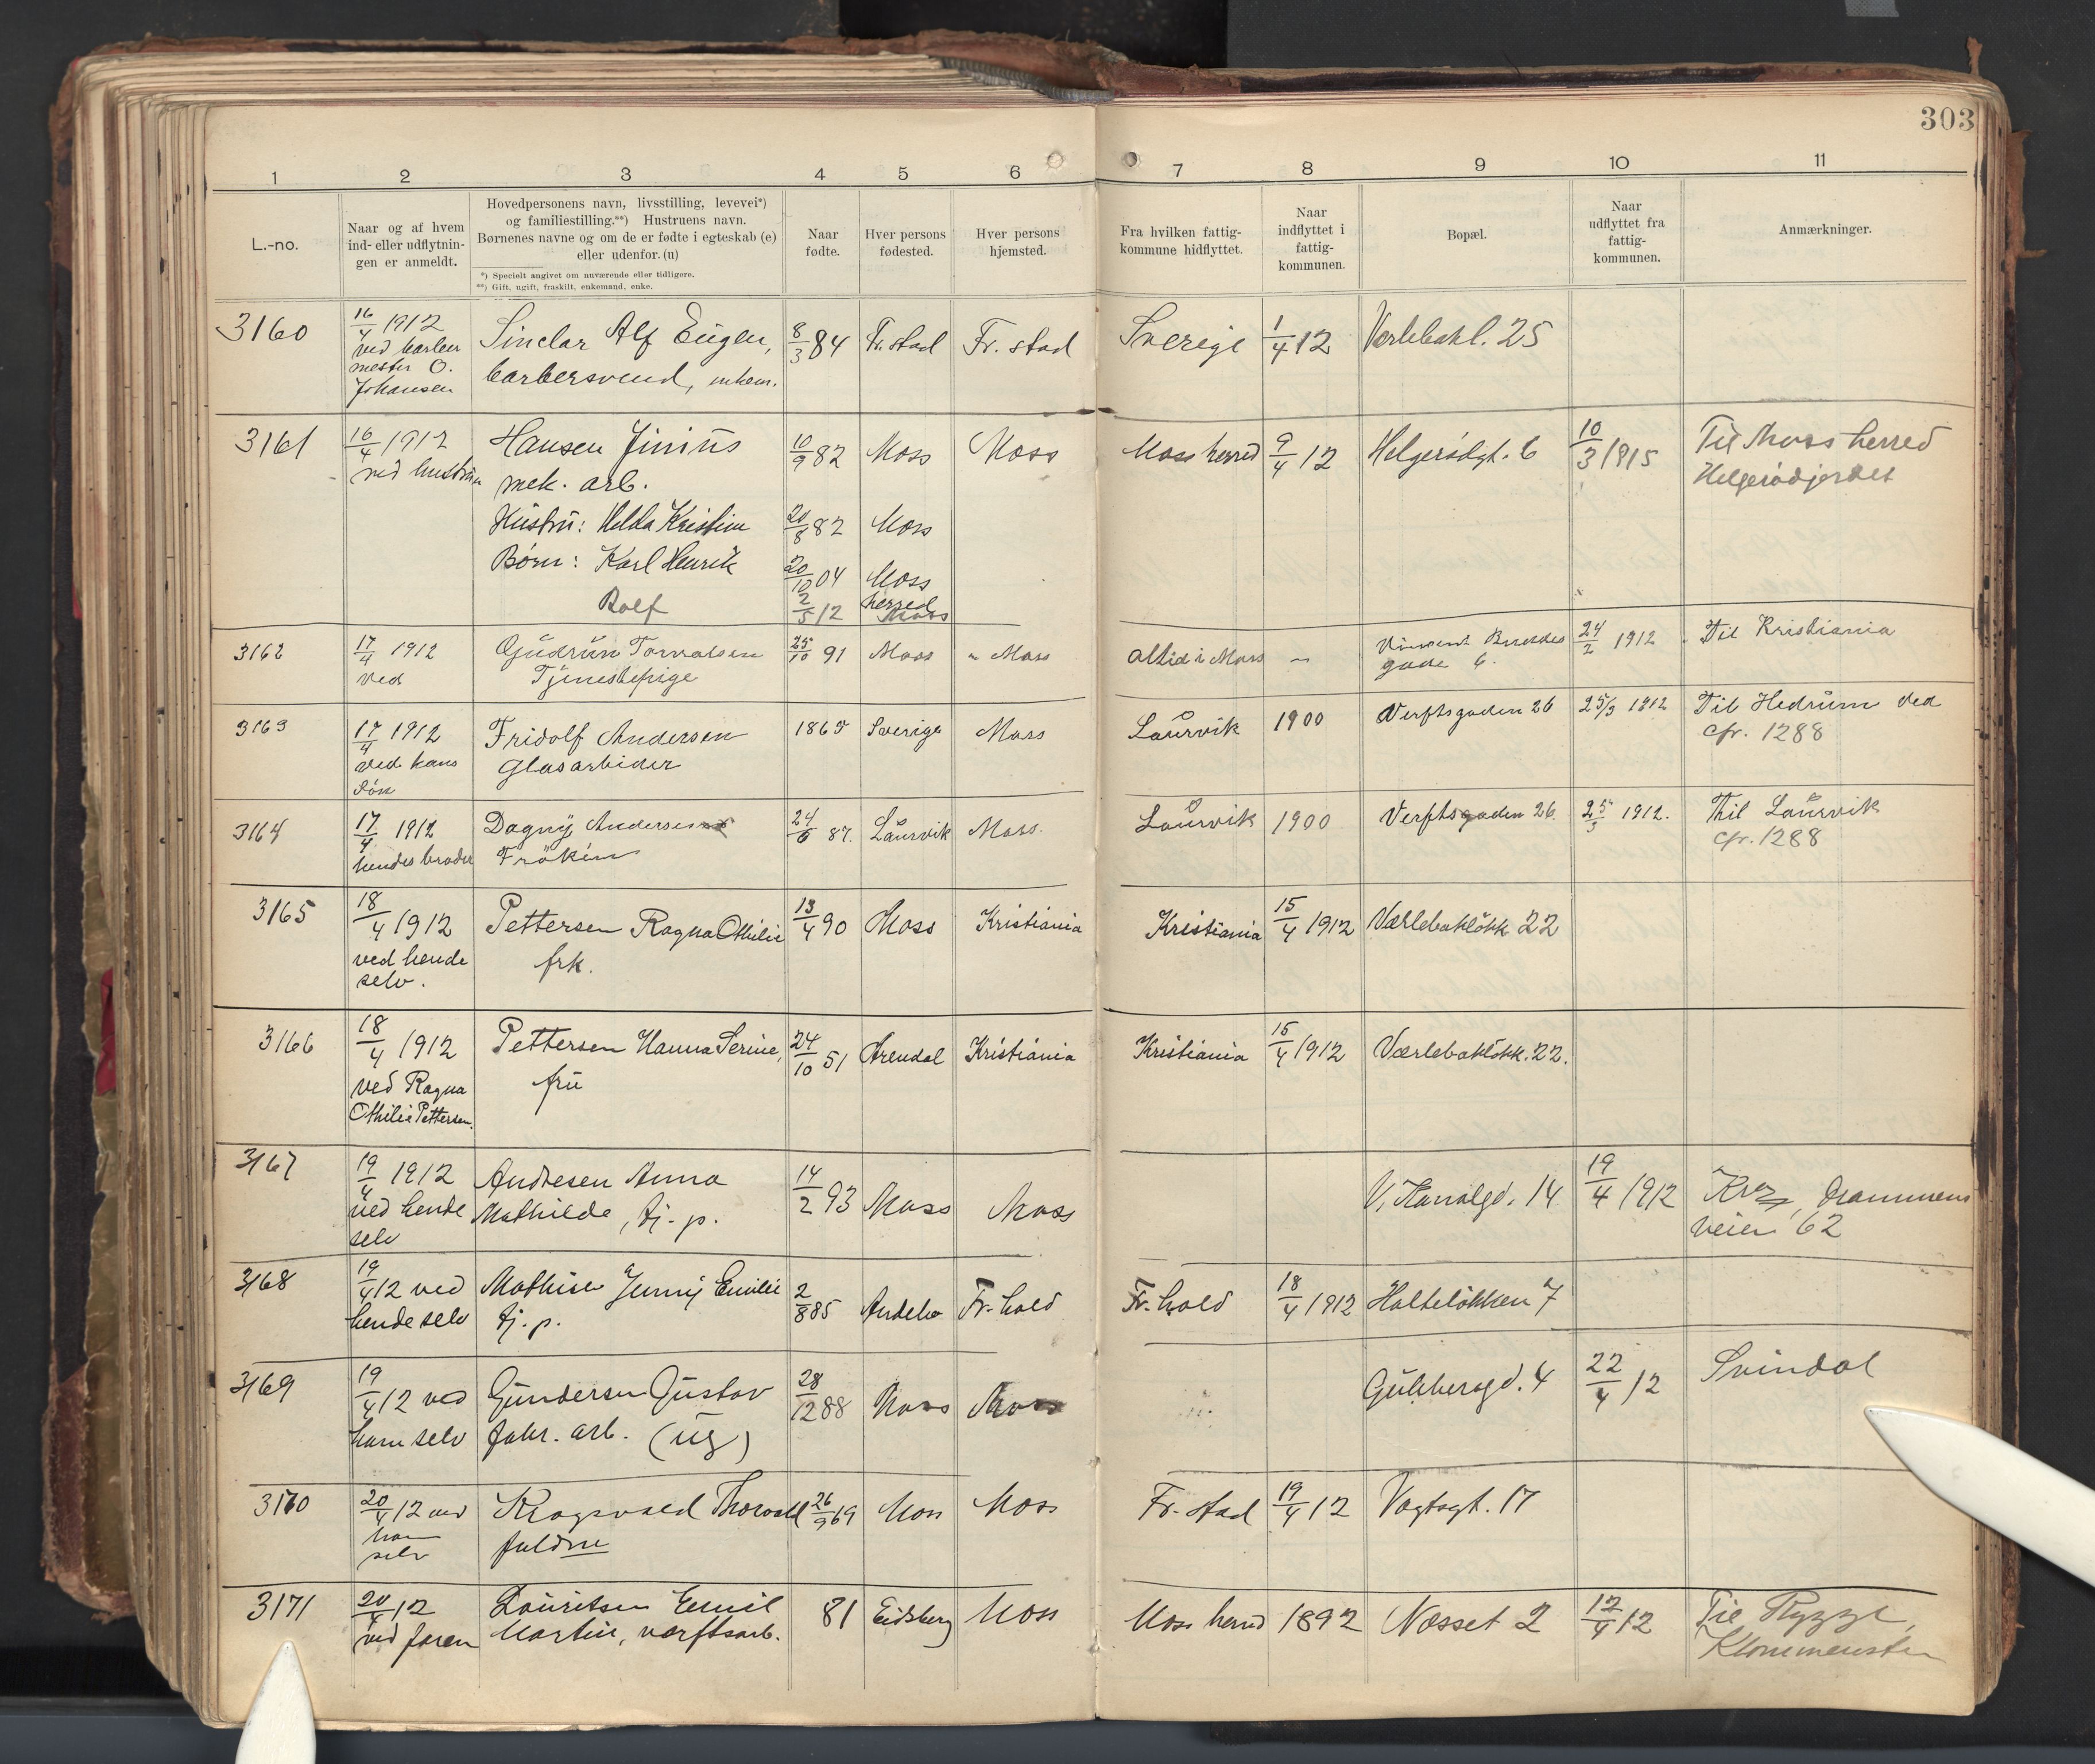 303
1 2 3 4 5 6 7 8 9 10 11
L.-no.
Naar og af hvem
ind- eller udflytnin-
gen er anmeldt.
Hovedpersonens navn, livsstilling, levevei*)
og familiestilling.**) Hustruens navn.
Børnenes navne og om de er fødte i egteskab (e)
eller udenfor. (u)
*) Specielt angivet om nuværende eller tidligere.
**) Gift, ugift, fraskilt, enkemand, enke.
Naar
fødte.
Hver persons
fødested.
Hver persons
hjemsted.
Fra hvilken fattig-
kommune hidflyttet.
Naar
indflyttet i
fattig-
kommunen.
Bopæl.
Naar
udflyttet fra
fattig-
kommunen.
Anmærkninger.
3160
16/4 1912
ved barber
mester O.
Johansen
Sinclar Alf Eugen,
barbersvend,
8/3 84
Fr. stad
Fr. stad
Sverige
1/4 12
Værlebakl. 25
3161
16/4 1912
ved hustruen
Hansen Junius
mek. arb.
Hustru: Hilda Kristine
Børn: Karl Henrik
Rolf
10/9 82
20/8 82
20/10 04
2/5 12
Moss
Moss
Moss
herred
Moss
Moss
Moss herred
9/4 12
Helgerødgt. 6
10/3 1915
Til Moss herred
Helgerødjordet
3162
17/4 1912
ved
Gudrun Torvalsen
Tjenestepige
25/10 91
Moss
" Moss
altid i Moss
~
Vincent Buddes
gade 6.
24/2 1912
Til Kristiania
3163
17/4 1912
ved hans
Sön
Fridolf Andersen
Glasarbider
1865
Sverige
Moss
Laurvik
1900
Verftsgaden 26
25/3 1912
Til Hedrum ved
cfr. 1288
3164
17/4 1912
hendes broder
Dagny Andersen
Frökin
24/6 87.
Laurvik
Moss.
Laurvik
1900
Verftsgaden 26.
25/3 1912.
Thil Laurvik
cfr. 1288
3165
18/4 1912
ved hende
selv.
Pettersen Ragna Othilie
frk.
13/4 90
Moss
Kristiania
Kristiania
15/4 1912
Værlebakløkk 22
3166
18/4 1912
ved Ragna
Othilie Pettersen.
Pettersen Hanna Serine,
fru
24/10 51
Arendal
Kristiania
Kristiania
15/4 1912
Værlebakløkk. 22.
3167
19/4 1912
ved hende
selv
Andresen Anna
Mathilde, tj. p.
14/2 93
Moss
Moss
V. Kanalgd. 14
19/4 1912
Kra, Drammens
veien 62
3168
19/4 12 ved
hende selv
Mathisen Jenny Emilie
tj. p.
2/8 85
Fr. hald
Fr. hald
18/4 1912
Holteløkken 7
3169
19/4 12 ved
ham selv
Gundersen Gustav
fabr. arb. (ug)
28/12 88
Moss
Moss
Gulebergd. 4
22/4 12
Svindal
3170
20/4 12 ved
ham
selv
Kragsvold Thorvald
26/9 69
Moss
Moss
Fr. stad
19/4 12
Vogtsgt. 17
3171
20/4 12
ved faren
Lauritsen Emil
Martin, værftsarb.
81
Eidsberg
Moss
Moss herred
1892
Næsset 2
12/4 12
Til Rygge,